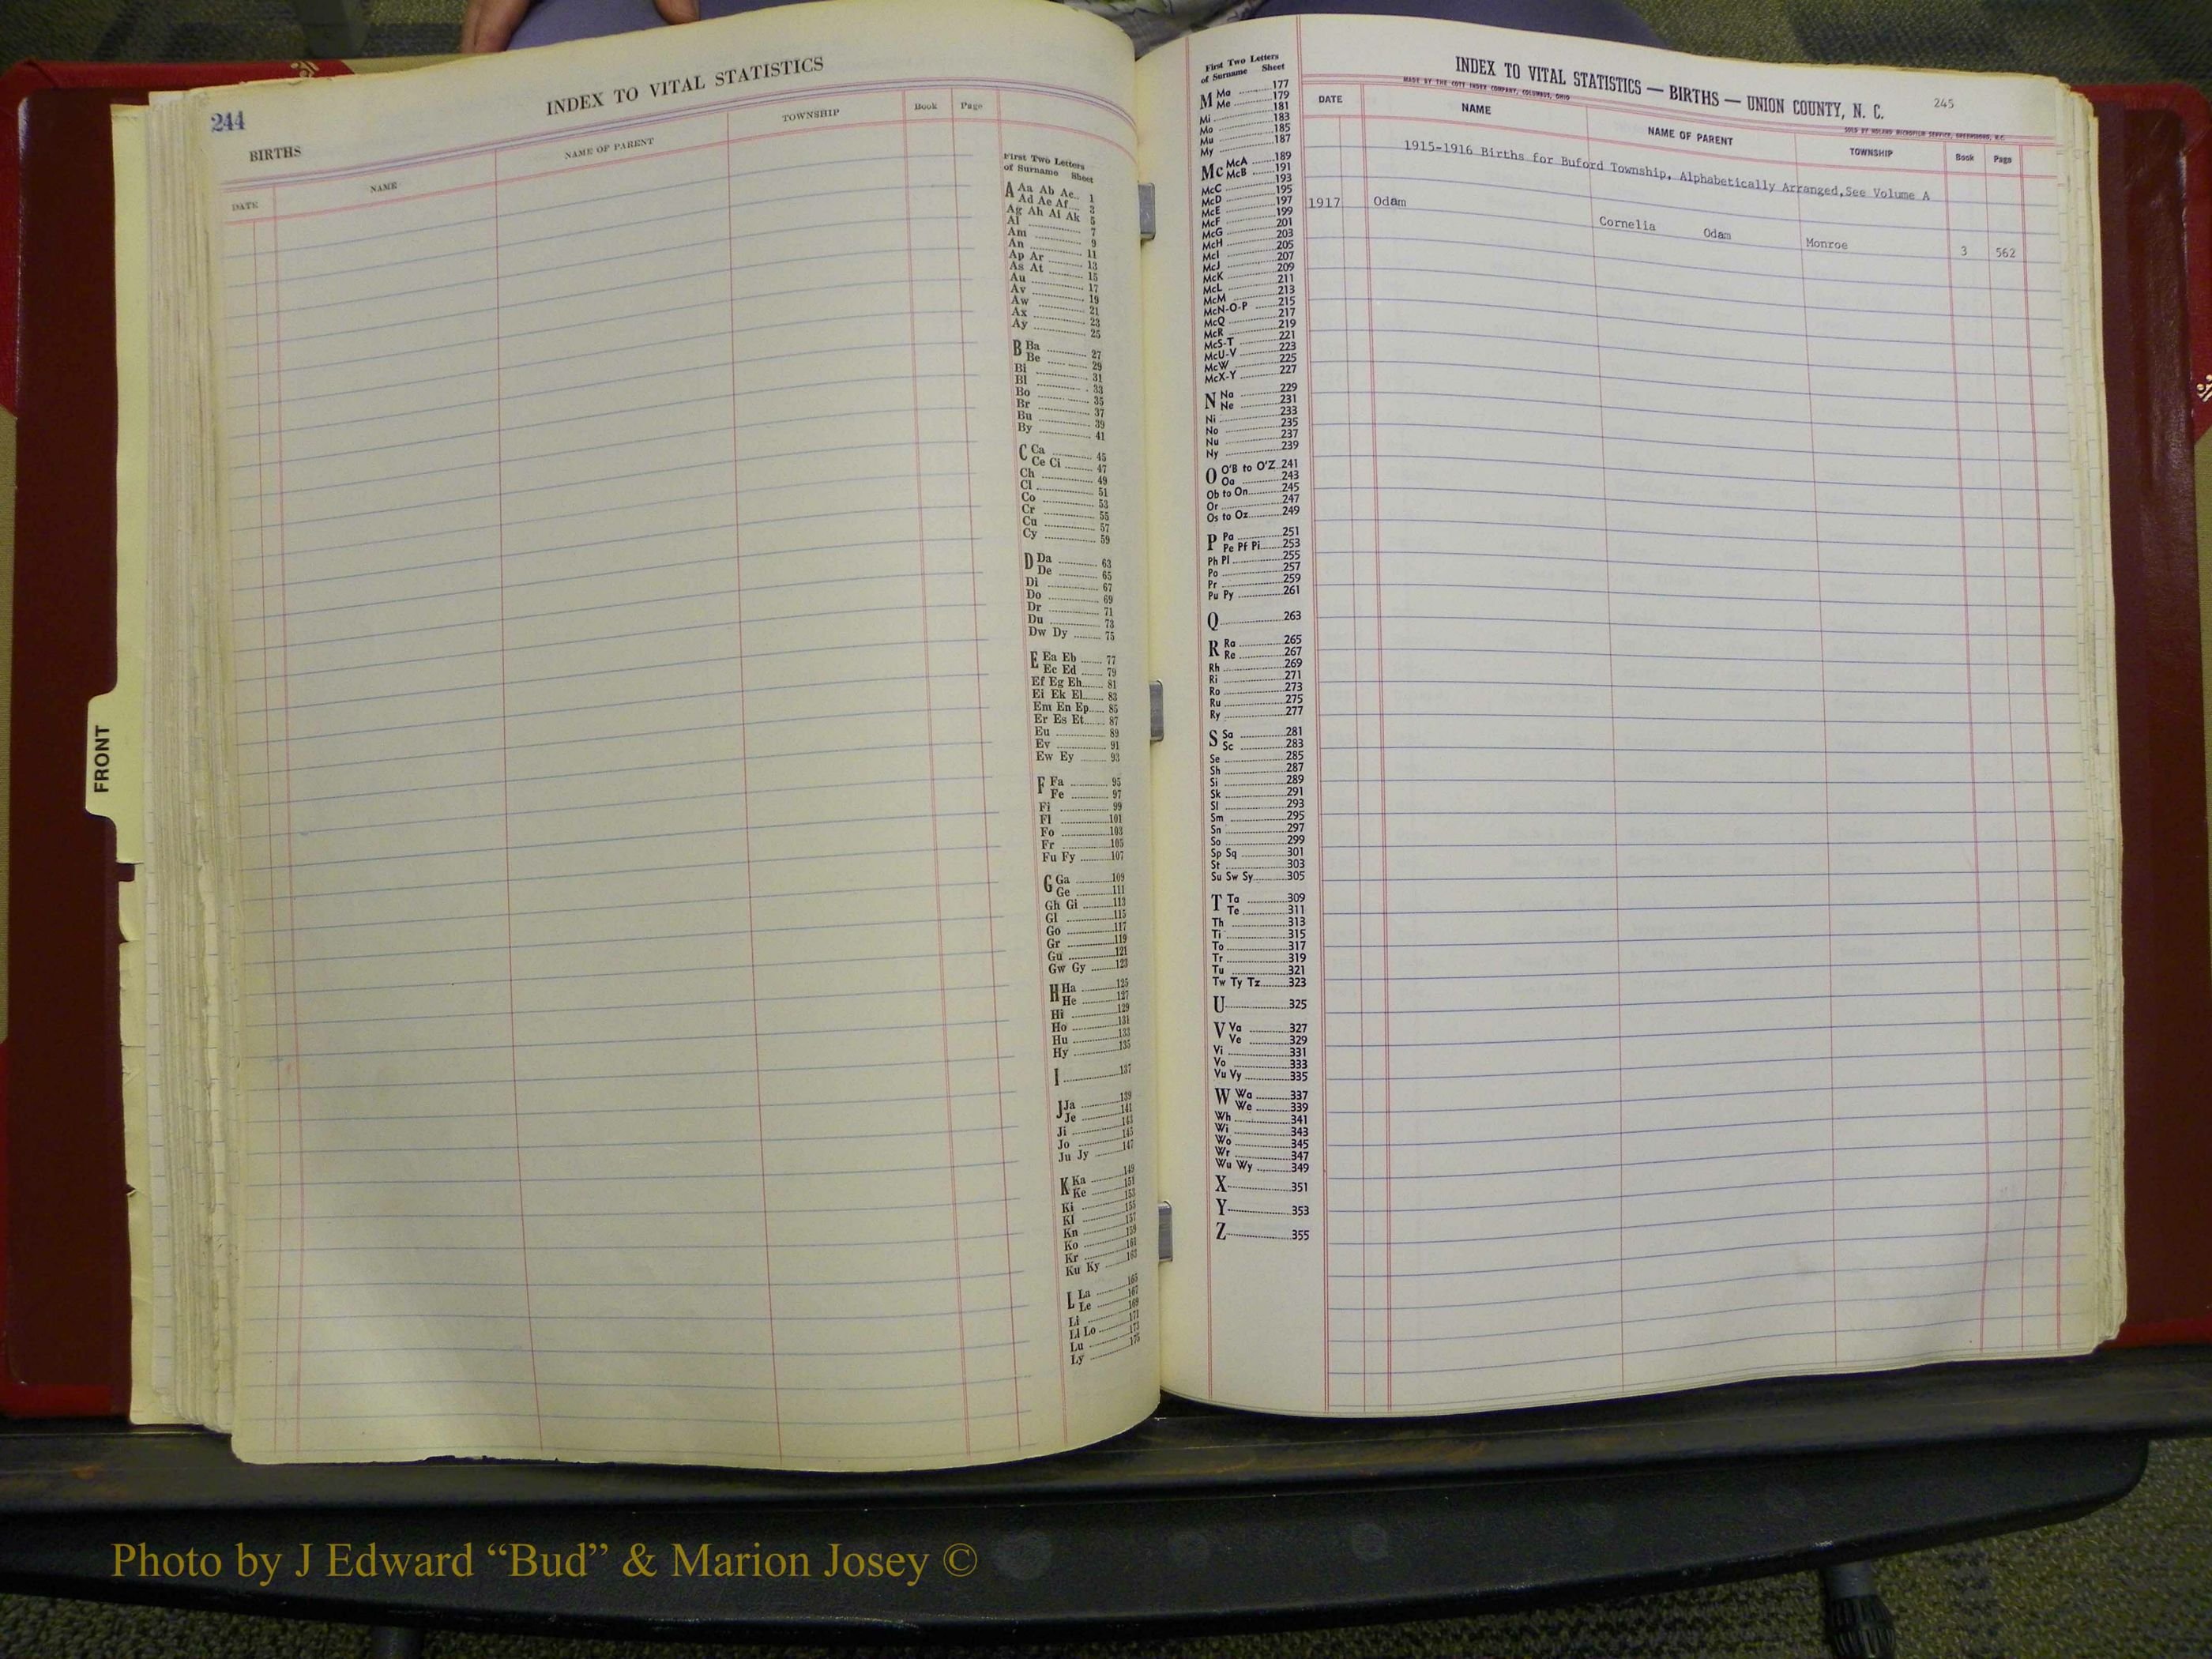 244
INDEX TO VITAL STATISTICS
BIRTHS
DATE NAME NAME OF PARENT TOWNSHIP Book Page
First Two Letters
of Surname Sheet
A Aa Ab Ac 1
Ad Ae Af 3
Ag Ah Ai Ak 5
Al 7
Am 9
An 11
Ap Ar 13
As At 15
Au 17
Av 19
Aw 21
Ax 23
Ay 25
B Ba 27
Be 29
Bi 31
Bl 33
Bo 35
Br 37
Bu 39
By 41
C Ca 45
Ce Ci 47
Ch 49
Cl 51
Co 53
Cr 55
Cu 57
Cy 59
D Da 63
De 65
Di 67
Do 69
Dr 71
Du 73
Dw Dy 75
E Ea Eb 77
Ec Ed 79
Ef Eg Eh 81
Ei Ek El 83
Em En Ep 85
Er Es Et 87
Eu 89
Ev 91
Ew Ey 93
F Fa 95
Fe 97
Fi 99
Fl 101
Fo 103
Fr 105
Fu Fy 107
G Ga 109
Ge 111
Gh Gi 113
Gl 115
Go 117
Gr 119
Gu 121
Gw Gy 123
H Ha 125
He 127
Hi 129
Ho 131
Hu 133
Hy 135
I 137
J Ja 139
Je 141
Ji 143
Jo 145
Ju Jy 147
K Ka 149
Ke 151
Ki 153
Kl 155
Kn 157
Ko 159
Kr 161
Ku Ky 163
L La 165
Le 167
Li 169
Ll Lo 171
Lu 173
Ly 175
FRONT
First Two Letters
of Surname Sheet
M Ma 177
Me 179
Mi 181
Mo 183
Mu 185
My 187
Mc McA 189
McB 191
McC 193
McD 195
McE 197
McF 199
McG 201
McH 203
McI 205
McJ 207
McK 209
McL 211
McM 213
McN-O-P 215
McQ 217
McR 219
McS-T 221
McU-V 223
McW 225
McX-Y 227
N Na 229
Ne 231
Ni 233
No 235
Nu 237
Ny 239
O O'B to O'Z 241
Oa 243
Ob to On 245
Or 247
Os to Oz 249
P Pa 251
Pe Pf Pi 253
Ph Pl 255
Po 257
Pr 259
Pu Py 261
Q 263
R Ra 265
Re 267
Rh 269
Ri 271
Ro 273
Ru 275
Ry 277
S Sa 281
Sc 283
Se 285
Sh 287
Si 289
Sk 291
Sl 293
Sm 295
Sn 297
So 299
Sp Sq 301
St 303
Su Sw Sy 305
T Ta 309
Te 311
Th 313
Ti 315
To 317
Tr 319
Tu 321
Tw Ty Tz 323
U 325
V Va 327
Ve 329
Vi 331
Vo 333
Vu Vy 335
W Wa 337
We 339
Wh 341
Wi 343
Wo 345
Wr 347
Wu Wy 349
X 351
Y 353
Z 355
INDEX TO VITAL STATISTICS — BIRTHS — UNION COUNTY, N. C. 245
MADE BY THE COTT INDEX COMPANY, COLUMBUS, OHIO
SOLD BY NOLAND MICROFILM SERVICE, GREENSBORO, N.C.
DATE NAME NAME OF PARENT TOWNSHIP Book Page
1915-1916 Births for Buford Township, Alphabetically Arranged,See Volume A
1917 Odam Cornelia Odam Monroe 3 562
Photo by J Edward “Bud” & Marion Josey ©